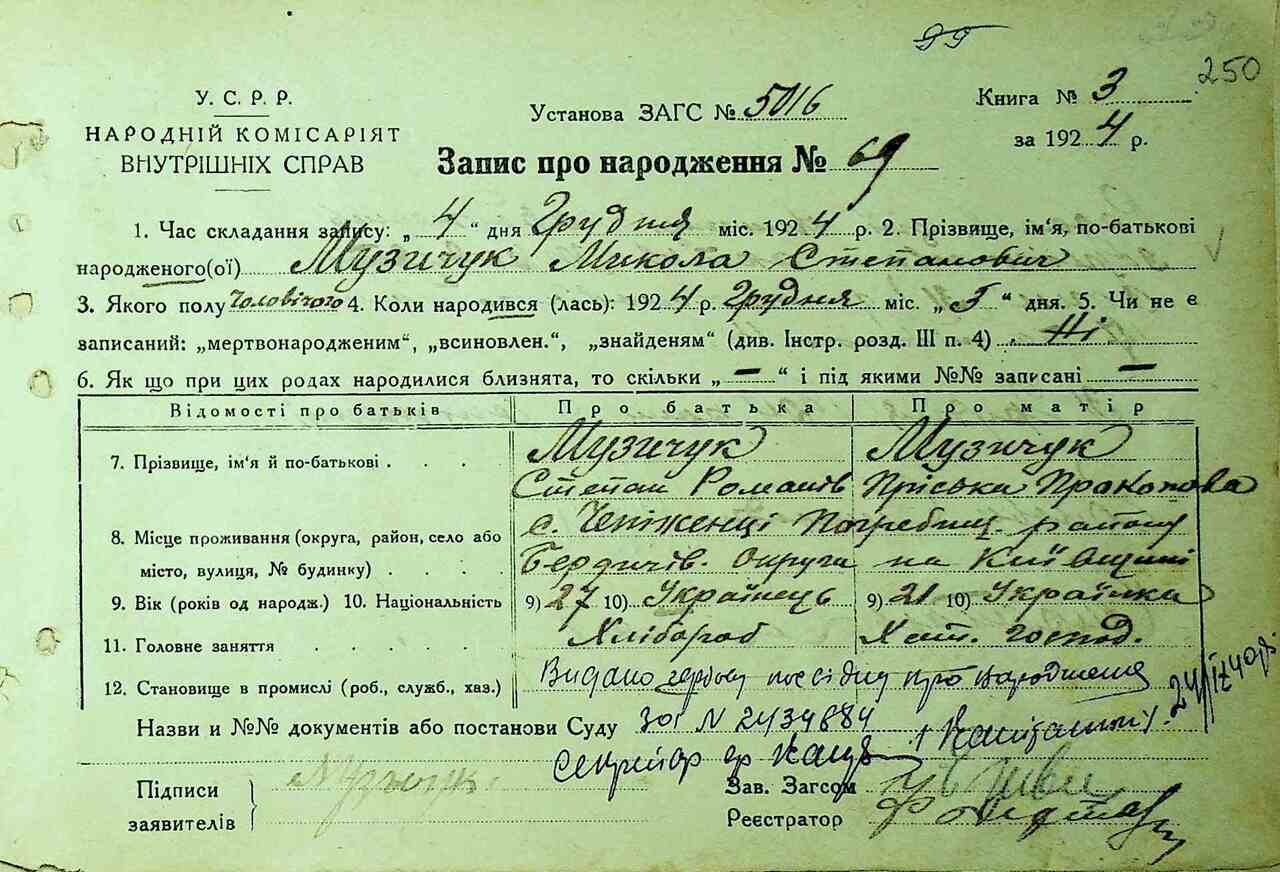 250
У. С. Р. Р.
НАРОДНІЙ КОМІСАРІЯТ
ВНУТРІШНІХ СПРАВ
Установа ЗАГС № 5016
Книга № 3
за 1924 р.
Запис про народження № 69
1. Час складання запису: „ 4 “ дня Грудня міс. 1924 р. 2. Прізвище, ім‘я, по-батькові
народженого(ої) Музичук Микола Степанович
3. Якого полу Чоловічого 4. Коли народився (лась): 1924 р. Грудня міс. „ “ дня. 5. Чи не є
записаний: „мертвонародженим“, „всиновлен.“, „знайденям“ (див. Інстр. розд. III п. 4) Ні
6. Як що при цих родах народилися близнята, то скільки „ — “ і під якими №№ записані —
Відомості про батьків Про батька Про матір
7. Прізвище, ім‘я й по-батькові . . . . Музичук Музичук
Степан Романів Пріська Прокопова
8. Місце проживання (округа, район, село або с. Чепіженці Погребищ. району
місто, вулиця, № будинку) . . . . Бердичів. округа на Київщині
9. Вік (років од народж.) 10. Національність 9) 27 10) Українець 9) 21 10) Українка
11. Головне заняття . . . . . Хлібороб Хат. господ.
12. Становище в промислі (роб., служб., хаз.) Видано про народження
Назви и №№ документів або постанови Суду № 2434884
Підписи
заявителів Музичук
Зав. Загсом
Реєстратор